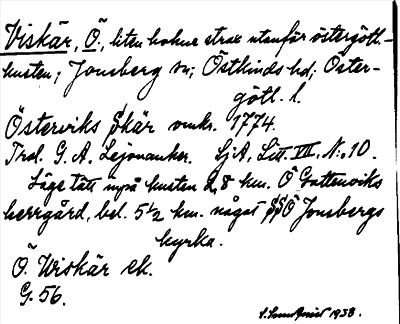 Viskär, Ö., liten holme strax utanför östergötl.-
kusten; Jonsberg sn; Östkinds hd; Öster-
götl. l.
Österviks skär omkr. 1774.
G. A. Lejonancker. SjA, Litt. VII. N:o 10.
Läge tätt inpå kusten 2,8 km. Ö Gottenviks
herrgård, bel. 5 1/2 km. något SSÖ Jonsbergs
kyrka.
Ö. Wiskär ek.
G. 56.
1938.